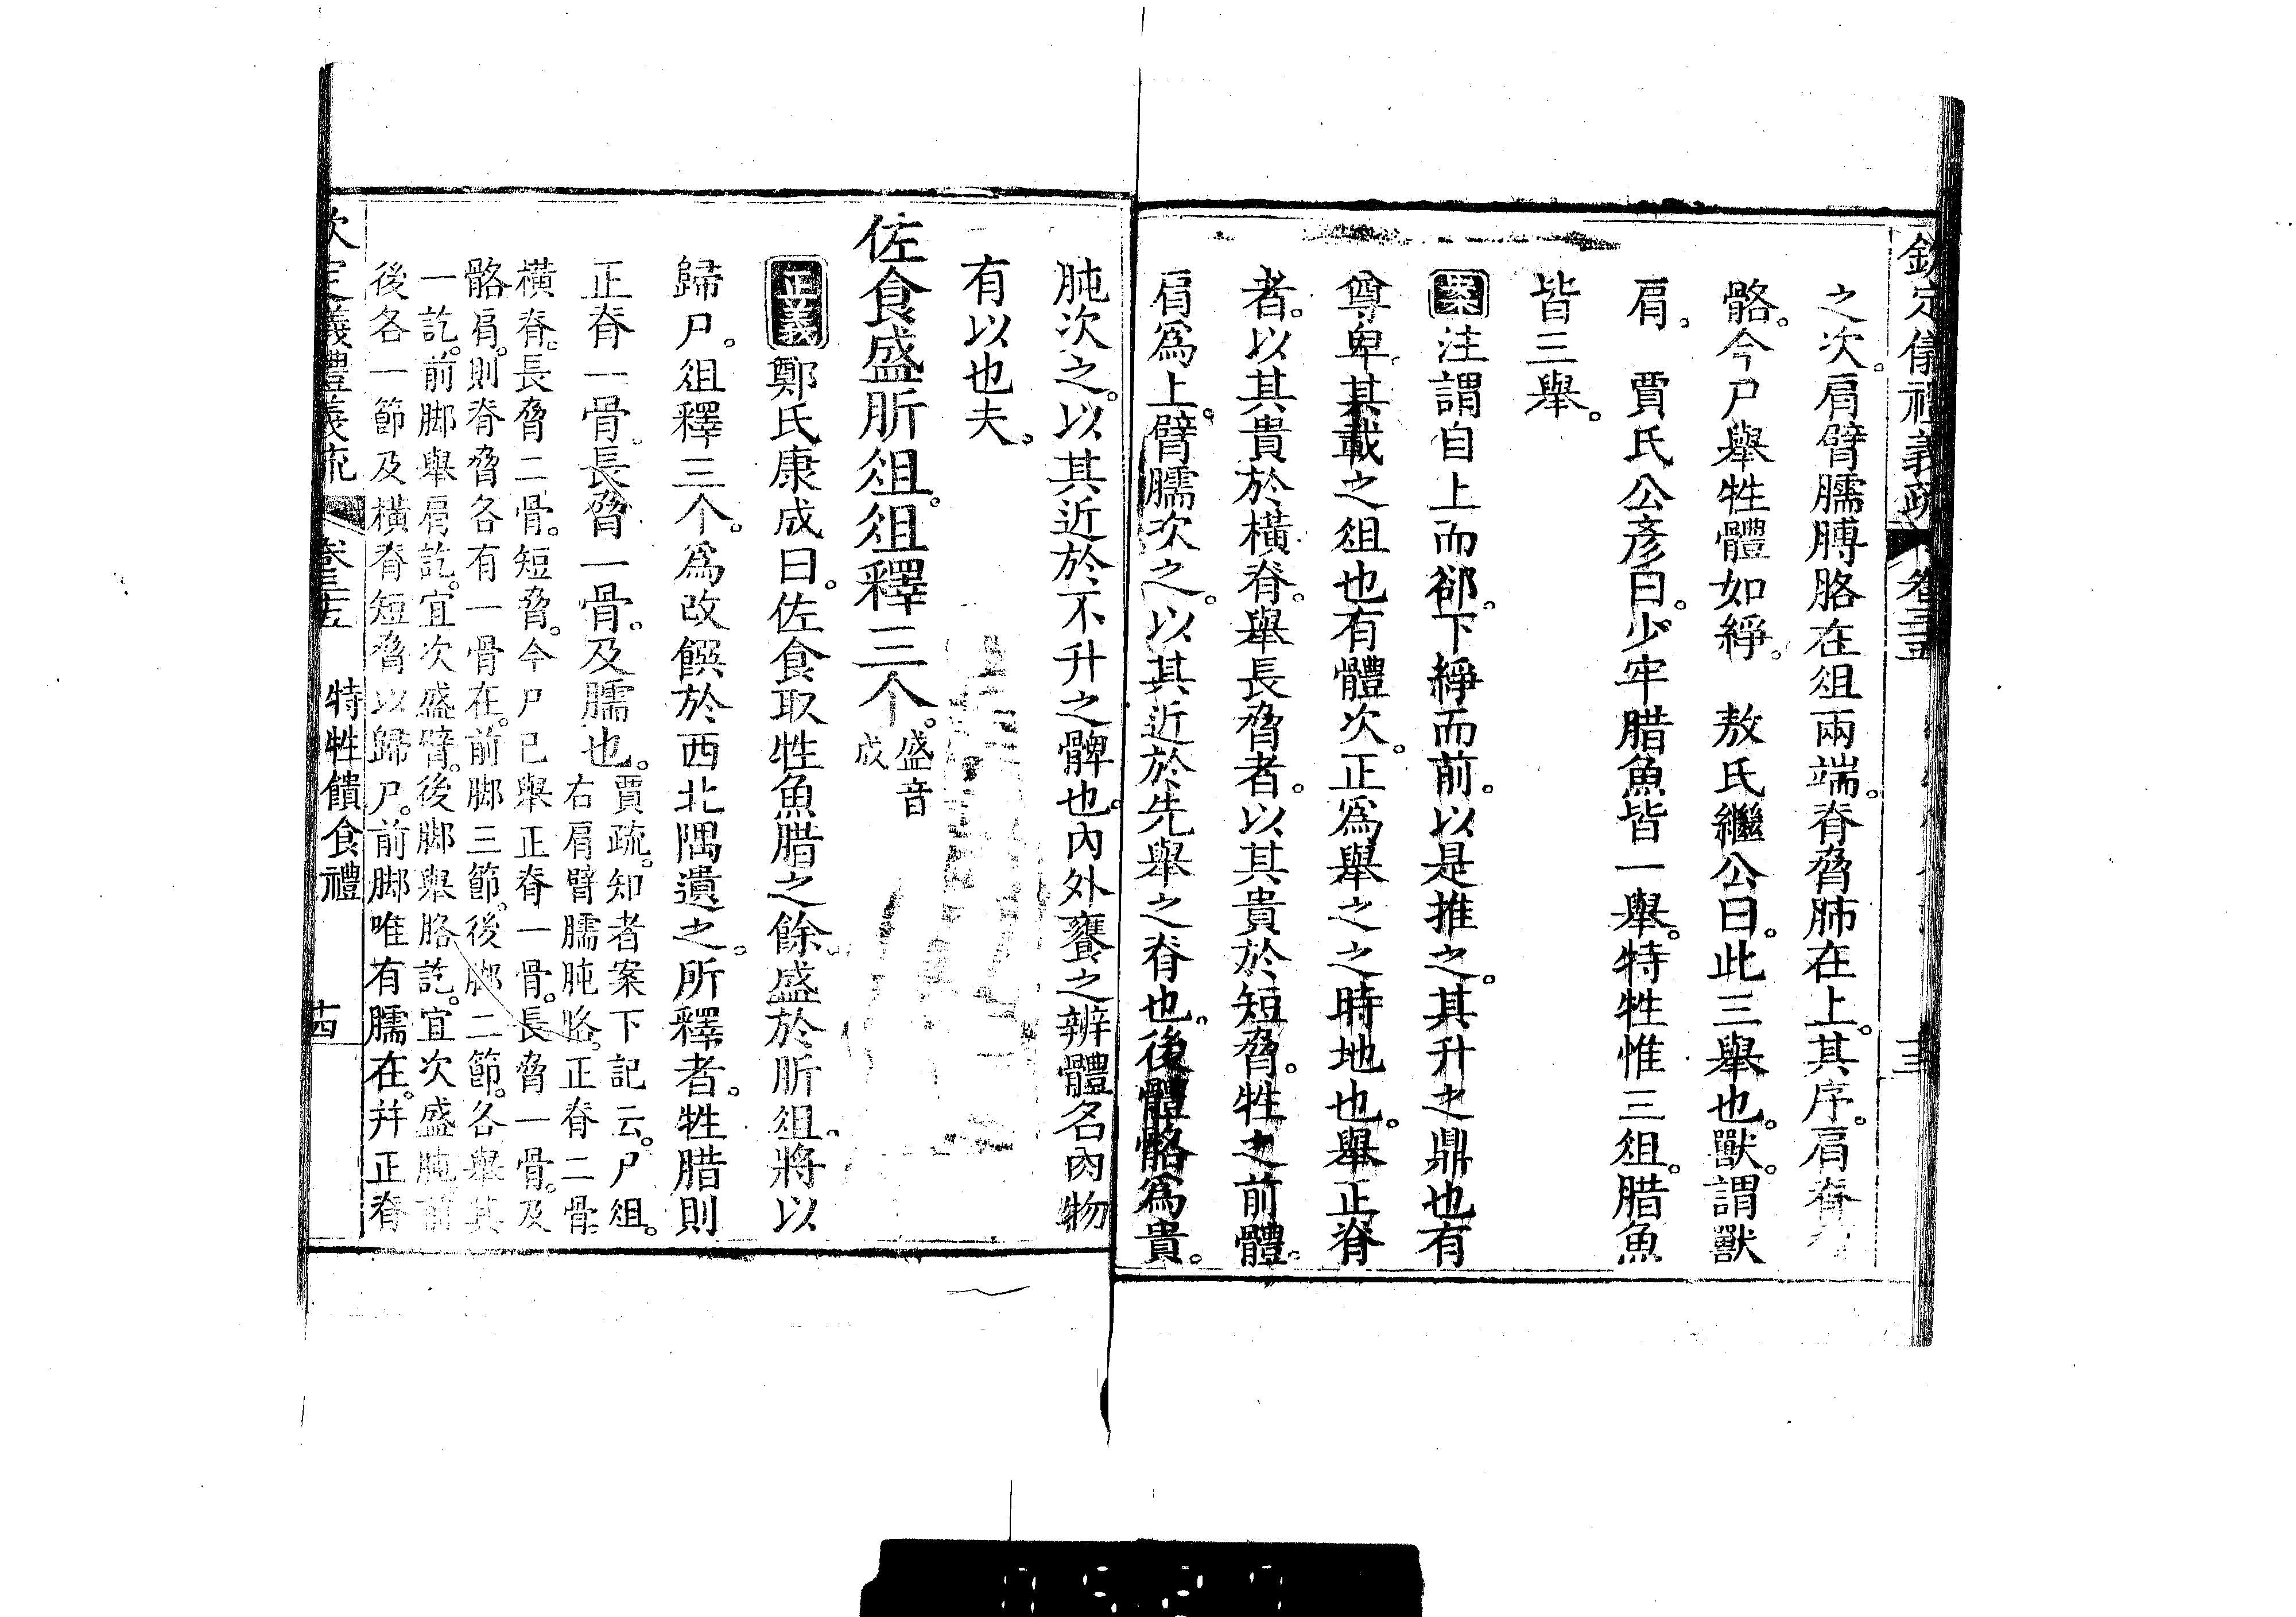 欽定儀禮義疏 卷三十五
之次。肩臂臑膊胳在俎兩端。脊脅肺在上。其序。肩脊
骼。今尸舉牲體如綪。 敖氏繼公曰。此三舉也。獸。謂獸
肩。 賈氏公彥曰。少牢腊魚皆一舉。特牲惟三俎。腊魚
皆三舉。
案 注謂自上而郤。下綪而前。以是推之。其升之鼎也有
尊卑。其載之俎也有體次。正為舉之之時地也。舉正脊
者。以其貴於橫脊。舉長脅者。以其貴於短脅。牲之前體。
肩為上。臂臑次之。以其近於先舉之脊也。後體骼為貴。
肫次之。以其近於不升之髀也。內外饔之辨體名肉物
有以也夫。
佐食盛肵俎。俎釋三个。盛音成
正義 鄭氏康成曰。佐食取牲魚腊之餘。盛於肵俎。將以
歸尸。俎釋三个。為改饌於西北隅遺之。所釋者。牲腊則
正脊一骨。長脅一骨。及臑也。賈疏。知者案下記云。尸俎。
右肩臂臑肫胳。正脊二骨
橫脊。長脅二骨。短脅。今尸已舉正脊一骨。長脅一骨。及
骼肩。則脊脅各有一骨在。前腳三節。後腳二節。各舉其
一訖。前腳舉肩訖。宜次盛臂。後腳舉胳訖。宜次盛肫。前
後各一節及橫脊短脅以歸尸。前腳唯有臑在。并正脊
欽定儀禮義疏 卷三十五 特牲饋食禮 十四